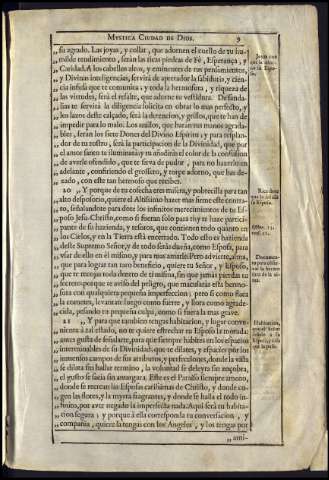 MYSTICA CIUDAD DE DIOS. 9
„ su agrado. Las joyas, y collar, que adornen el cuello de tu hu-
„ milde rendimiento, serán las ricas piedras de Fè, Esperança, y
„ Caridad. A los cabellos altos, y eminentes de tus pensamientos,
„ y Divinas inteligencias, servirá de apretador la sabiduria, y cien-
„ cia infusa que te comunica; y toda la hermosura, y riqueza de
„ las virtudes, será el resalte, que adorne tu vestidura. De sanda-
„ lias te servirá la diligencia solicita en obrar lo mas perfecto, y
„ los lazos deste calçado, será la detencion, y grillos, que te han de
„ impedir para lo malo. Los anillos, que harán tus manos agrada-
„ bles, serán los siete Dones del Divino Espiritu; y para resplan-
„ dor de tu rostro, será la participacion de la Divinidad, que por
„ el amor santo te iluminará; y tu añadirás el color de la confusion
„ de averle ofendido, que te sirva de pudor, para no hazerlo en
„ adelante, confiriendo el grossero, y torpe adorno, que has de-
„ xado, con este tan hermoso que recibes.
„ 20 Y porque de tu cosecha eres misera, y pobrecilla para tan
„ alto desposorio, quiere el Altissimo hazer mas firme este contra-
„ to, señalandote para dote los infinitos merecimientos de tu Es-
„ poso Jesu-Christo, como si fueran solo para ti; y te haze partici-
„ pante de su hazienda, y tesoros, que contienen todo quanto en
„ los Cielos, y en la Tierra está encerrado. Todo es hazienda
„ deste Supremo Señor, y de todo serás dueña, como Esposa, para
„ usar de ello en él mismo, y para mas amarle. Pero advierte, alma,
„ que para lograr tan raro beneficio, quiere tu Señor, y Esposo,
„ que te recojas toda dentro de ti misma, sin que jamàs pierdas tu
„ secreto: porque te aviso del peligro, que macularás esta hermo-
„ sura con qualquiera pequeña imperfeccion; pero si como flaca
„ la cometes, levantate luego como fuerte, y llora como agrade-
„ cida, pesando tu pequeña culpa, como si fuera la mas grave.
„ 21 Y para que tambien tengas habitacion, y lugar conve-
„ niente á tal estado, no te quiere estrechar tu Esposo la morada:
„ antes gusta de señalarte, para que siempre habites en los espacios
„ interminables de su Divinidad; que te dilates, y espacies por los
„ inmensos campos de sus atributos, y perfecciones, donde la vista
„ se dilata sin hallar termino, la voluntad se deleyta sin zozobra,
„ el gusto se sacia sin amargura. Este es el Paraiso siempre ameno,
„ donde se recrean las Esposas carissimas de Christo, y donde co-
„ gen las flores, y la myrra fragrantes, y donde se halla el todo in-
„ finito, por aver negado la imperfecta nada. Aqui será tu habita-
„ cion segura; y porque á ella corresponda tu conversacion, y
„ compañia, quiere la tengas con los Angeles, y los tengas por
ami-